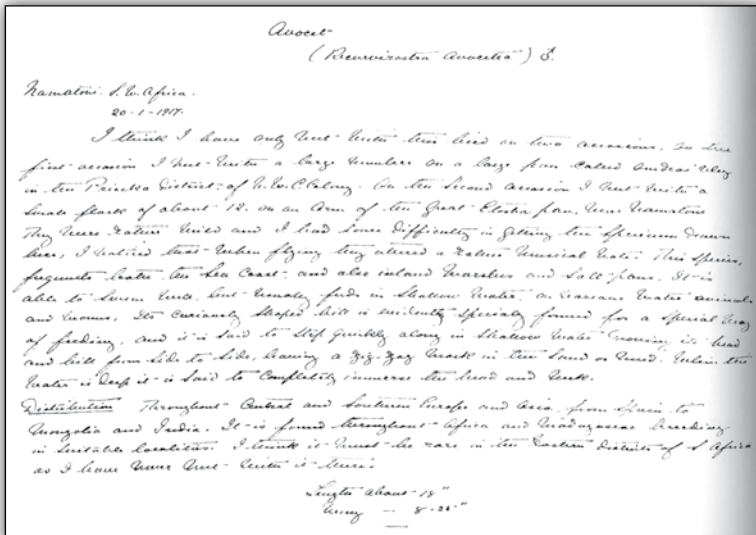 Avocet
(Recurvirostra Avocetta) ♂.
Namatoni. S. W. Africa.
20-1-1917.
I think I have only met with this bird on two occasions, on the
first occasion I met with a large number on a large pan called Vley
in the Prieska District of N. W. C. Colony. On the second occasion I met with a
small flock of about 12. on an arm of the great Etosha pan, near Namatoni
They were rather wild and I had some difficulty in getting the specimen drawn
here, I noticed that when flying they uttered a rather musical note. This species,
frequents both the sea coast, and also inland marshes and salt pans. It is
able to swim well but usually feeds in shallow water, on various water animals
and worms, Its curiously shaped bill is evidently specially formed for a special way
of feeding, and it is said to step quickly along in shallow water moving its head
and bill from side to side, leaving a zig-zag mark in the sand or mud. When the
water is deep it is said to completely immerse the head and neck.
Distribution Throughout Central and Southern Europe and Asia, from Spain to
Mongolia and India. It is found throughout Africa and Madagascar breeding
in suitable localities. I think it must be rare in the Eastern districts of S Africa
as I have never met with it there.
Length about 18"
Wing — 8.25"